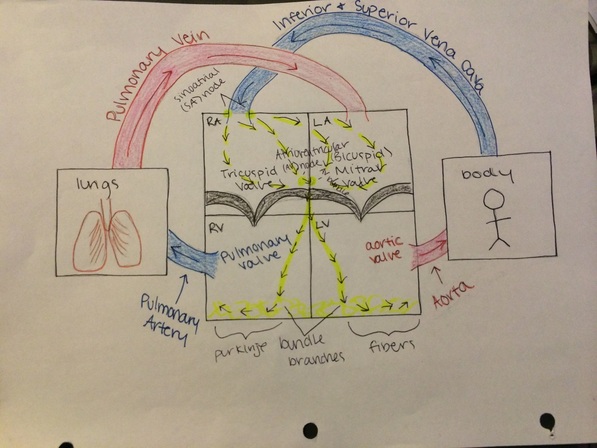 Inferior & Superior Vena Cava
Pulmonary Vein
sinoatrial
(SA) node
RA
LA
Atrioventricular
(AV) node
Tricuspid
Valve
(Bicuspid)
Mitral
Valve
lungs
body
RV
LV
Pulmonary
valve
aortic
valve
Pulmonary
Artery
Aorta
purkinje
bundle
branches
fibers